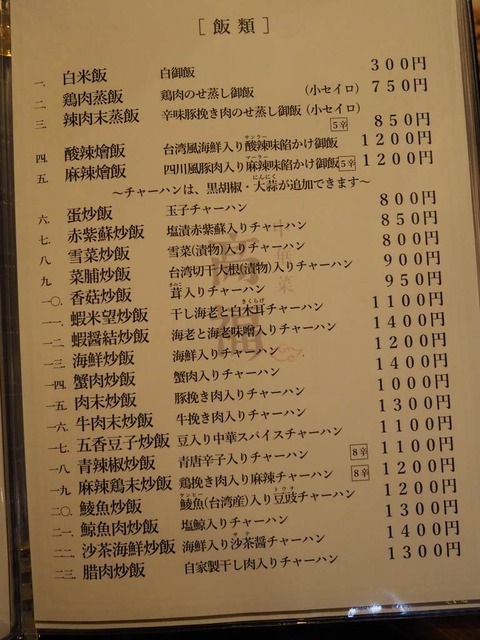 [飯類]
一. 白米飯 白御飯 300円
二. 鶏肉蒸飯 鶏肉のせ蒸し御飯 (小セイロ) 750円
三. 辣肉末蒸飯 辛味豚挽き肉のせ蒸し御飯 (小セイロ) 5辛 850円
四. 酸辣燴飯 台湾風海鮮入り酸辣味餡かけ御飯 1200円
五. 麻辣燴飯 四川風豚肉入り麻辣味餡かけ御飯 5辛 1200円
～チャーハンは、黒胡椒・大蒜が追加できます～
六. 蛋炒飯 玉子チャーハン 800円
七. 赤紫蘇炒飯 塩漬赤紫蘇入りチャーハン 850円
八. 雪菜炒飯 雪菜(漬物)入りチャーハン 800円
九. 菜脯炒飯 台湾切干大根(漬物)入りチャーハン 900円
一〇. 香菇炒飯 茸入りチャーハン 950円
一一. 蝦米望炒飯 干し海老と白木耳チャーハン 1100円
一二. 蝦醤結炒飯 海老と海老味噌入りチャーハン 1400円
一三. 海鮮炒飯 海鮮入りチャーハン 1200円
一四. 蟹肉炒飯 蟹肉入りチャーハン 1400円
一五. 肉末炒飯 豚挽き肉入りチャーハン 1000円
一六. 牛肉末炒飯 牛挽き肉入りチャーハン 1300円
一七. 五香豆子炒飯 豆入り中華スパイスチャーハン 1100円
一八. 青辣椒炒飯 青唐辛子入りチャーハン 8辛 1100円
一九. 麻辣鶏末炒飯 鶏挽き肉入り麻辣チャーハン 8辛 1200円
二〇. 鯪魚炒飯 鯪魚(台湾産)入り豆豉チャーハン 1200円
二一. 鯨鮮肉炒飯 塩鯨入りチャーハン 1300円
二二. 沙茶海鮮炒飯 海鮮入り沙茶醤チャーハン 1400円
二三. 腊肉炒飯 自家製干し肉入りチャーハン 1300円